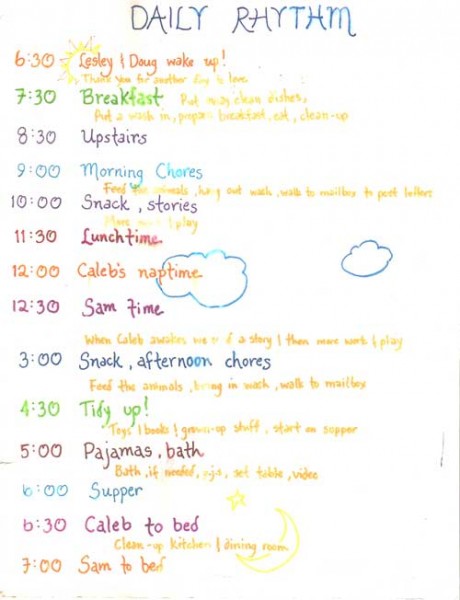 DAILY RHYTHM
6:30 Lesley & Doug wake up!
Thank you for another day to love.
7:30 Breakfast Put away clean dishes,
Put a wash in, prepare breakfast, eat, clean-up
8:30 Upstairs
9:00 Morning Chores
Feed the animals, hang out wash, walk to mailbox to post letters
10:00 Snack, stories
More work & play
11:30 Lunchtime
12:00 Caleb's naptime
12:30 Sam Time
When Caleb awakes we read a story & then more work & play
3:00 Snack, afternoon chores
Feed the animals, bring in wash, walk to mailbox
4:30 Tidy up!
Toys & books & grown-up stuff, start on supper
5:00 Pajamas, bath
Bath, if needed, pjs, set table, video
6:00 Supper
6:30 Caleb to bed
Clean-up kitchen & dining room
7:00 Sam to bed